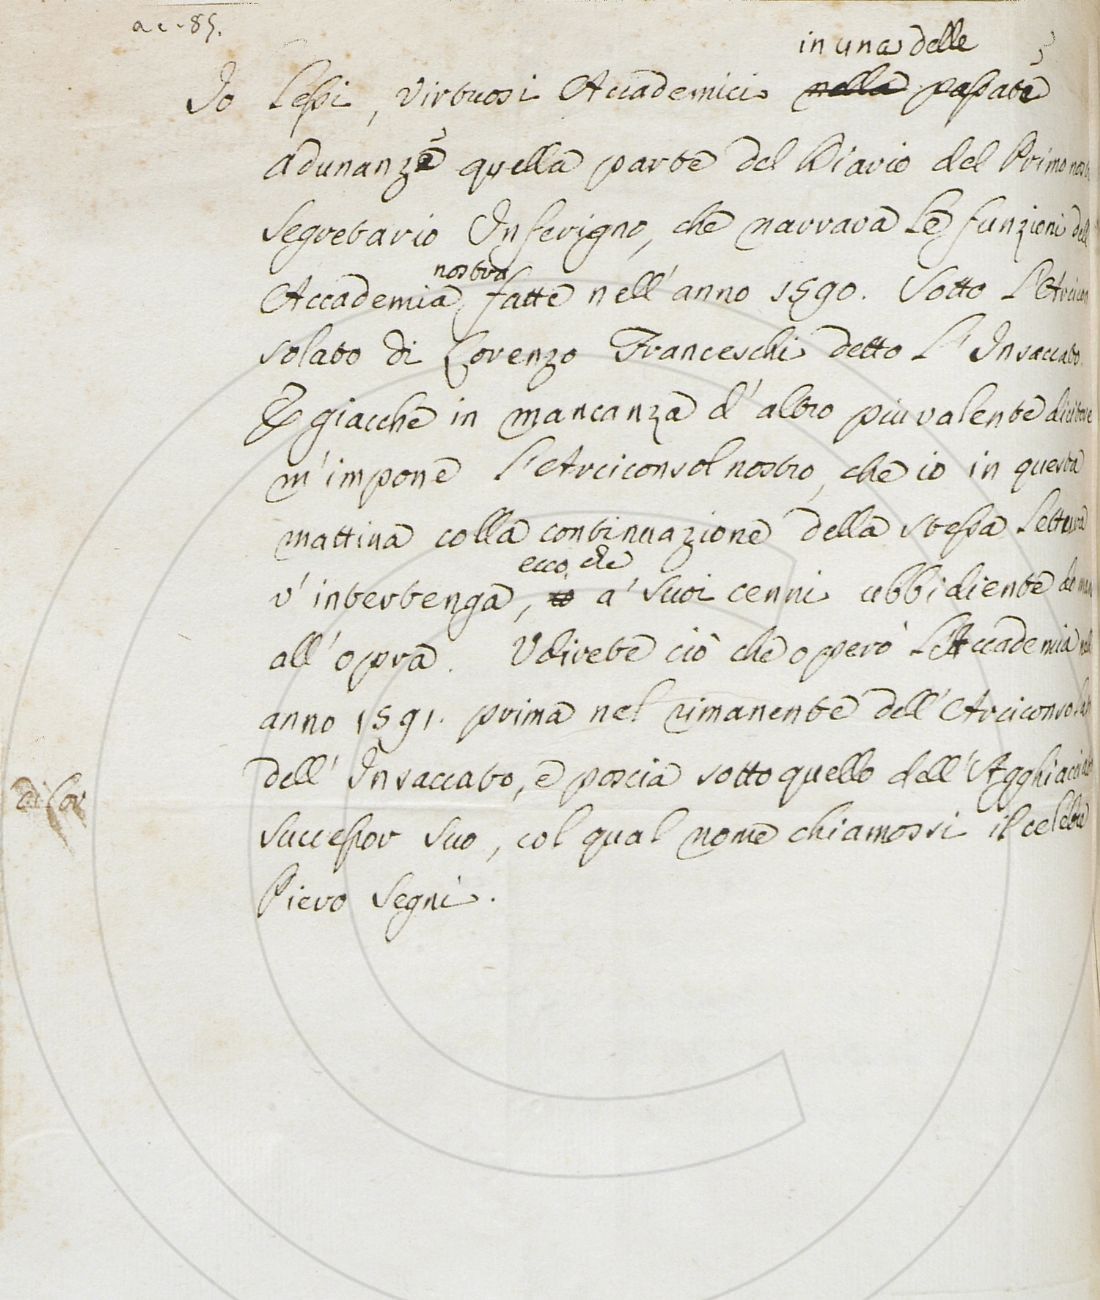 a c. 85.
in una delle
Io Lessi, Virtuosi Accademici nella passate
adunanze quella parte del Diario del Primo nost
Segretario Inferigno, che narrava le funzioni dell
nostra
Accademia fatte nell'anno 1590. Sotto l'Arcicon
solato di Lorenzo Franceschi detto l'Insaccato.
E giacchè in mancanza d'altro piu valente dicitore
m'impone l'Arciconsol nostro, che io in questa
mattina colla continuazione della stessa Lettura
ecco che
v'intertenga, io a' suoi cenni ubbidiente do mano
all'opra. Udirete ciò che operò l'Accademia nell
anno 1591. prima nel rimanente dell'Arciconsolato
dell'Insaccato, e poscia sotto quello dell'Agghiacciato
Successor suo, col qual nome chiamossi il celebre
Piero Segni.